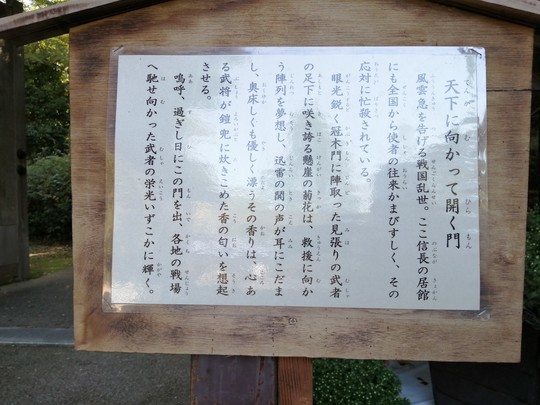 天下に向かって開く門
風雲急を告げる戦国乱世。ここ信長の居館
にも全国から使者の往来かまびすしく、その
応対に忙殺されている。
眼光鋭く冠木門に陣取った見張りの武者
の足下に咲き誇る懸崖の菊花は、救援に向か
う陣列を夢想し、迅雷の閧の声が耳にこだま
し、奥床しくも優しく漂うその香りは、心あ
る武将が鎧兜に炊きこめた香の匂いを想起
させる。
嗚呼、過ぎし日にこの門を出、各地の戦場
へ馳せ向かった武者の栄光いずこかに輝く。